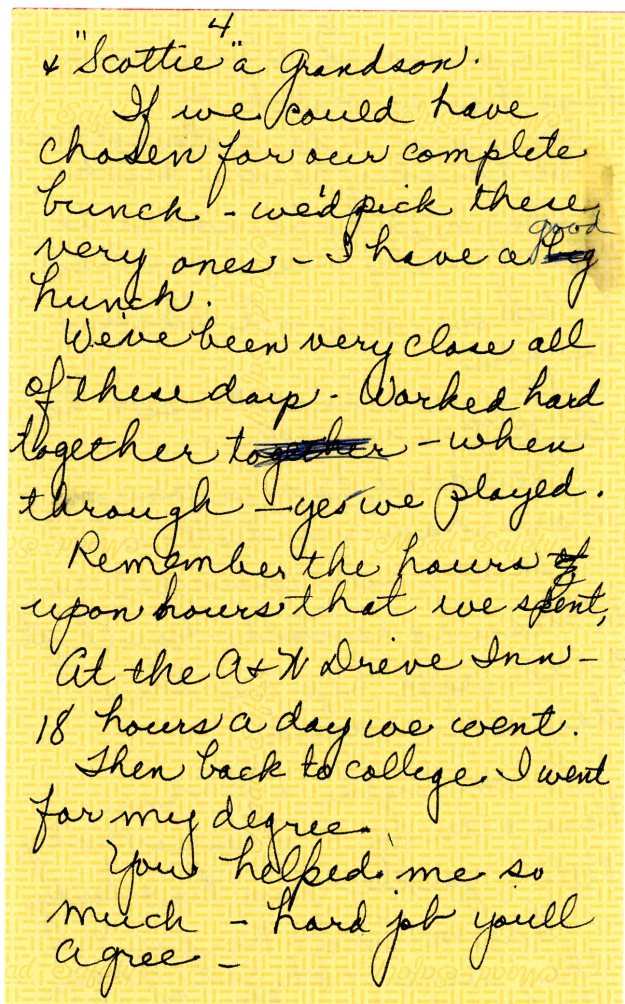 4
& "Scottie" a Grandson.
If we could have
chosen for our complete
bunch - we'd pick these
good
very ones - I have a big
hunch.
We've been very close all
of these days - Worked hard
together together - when
through - yes we played.
Remember the hours of
upon hours that we spent,
At the A & W Drive Inn -
18 hours a day we went.
Then back to college I went
for my degree.
You helped me so
much - hard job you'll
agree -